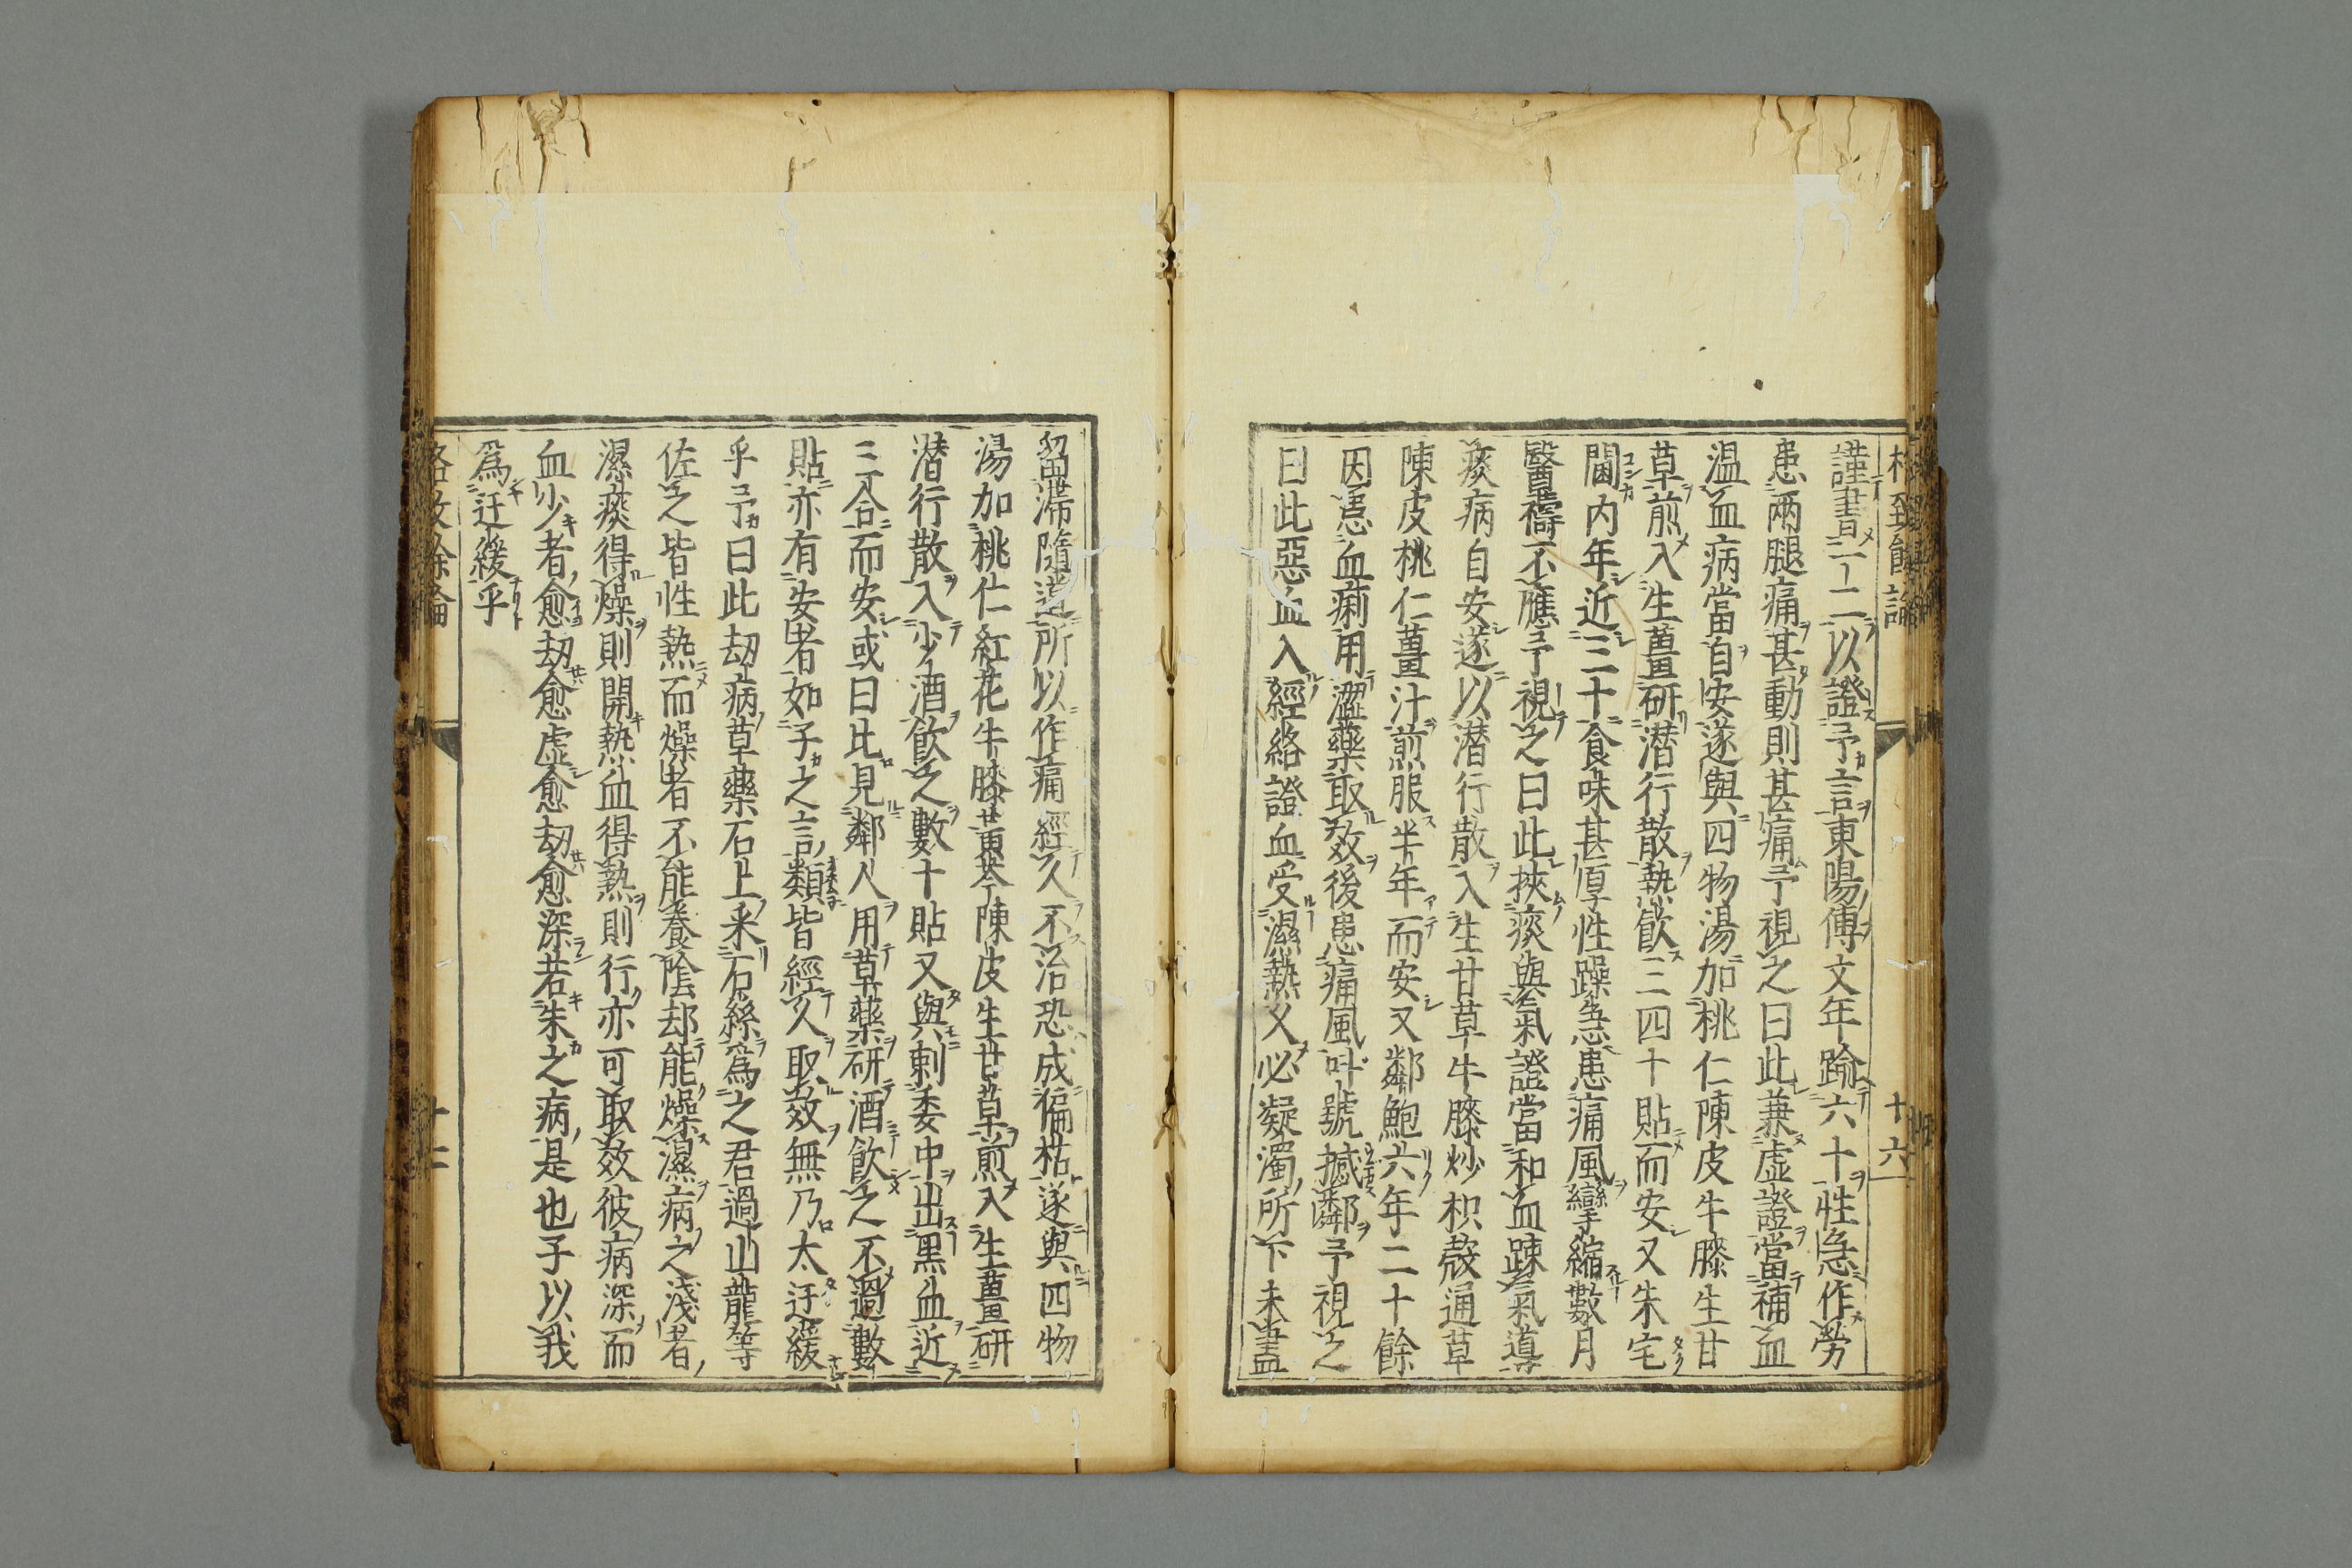 格致餘論
十六
謹書一二以證予言東陽傅文年踰六十性急作勞
患兩腿痛甚動則甚痛予視之曰此兼虚證當補血
温血病當自安遂與四物湯加桃仁陳皮牛膝生甘
草煎入生薑研潜行散熱飲三四十貼而安又朱宅
閫内年近三十食味甚厚性躁急患痛風攣縮數月
醫禱不應予視之曰此挾痰與氣證當和血踈氣導
痰病自安遂以潜行散入生甘草牛膝炒枳殻通草
陳皮桃仁薑汁煎服半年而安又鄰鮑六年二十餘
因患血痢用澀藥取效後患痛風呌號撼鄰予視之
曰此惡血入經絡證血受濕熱乆必凝濁所下未盡
留滯隨道所以作痛經乆不治恐成偏枯遂與四物
湯加桃仁紅花牛膝黄芩陳皮生甘草煎入生薑研
潜行散入少酒飲之數十貼又與刺委中出黒血近
三合而安或曰比見鄰人用草藥研酒飲之不過數
貼亦有安者如子之言類皆經乆取效無乃太迂緩
乎予曰此劫病草藥石上采石絲爲之君過山龍等
佐之皆性熱而燥者不能養陰却能燥濕病之淺者
濕痰得燥則開熱血得熱則行亦可取效彼病深而
血少者愈劫愈虚愈劫愈深若朱之病是也子以我
爲迂緩乎
格致餘論